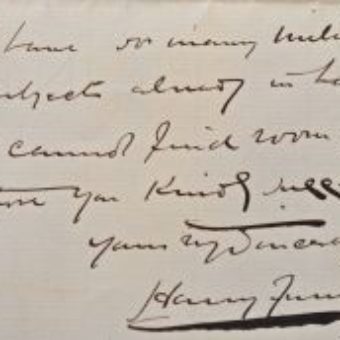 have so many
subjects already in
cannot find room
you kindly
yours vy sincere
Harry Furn